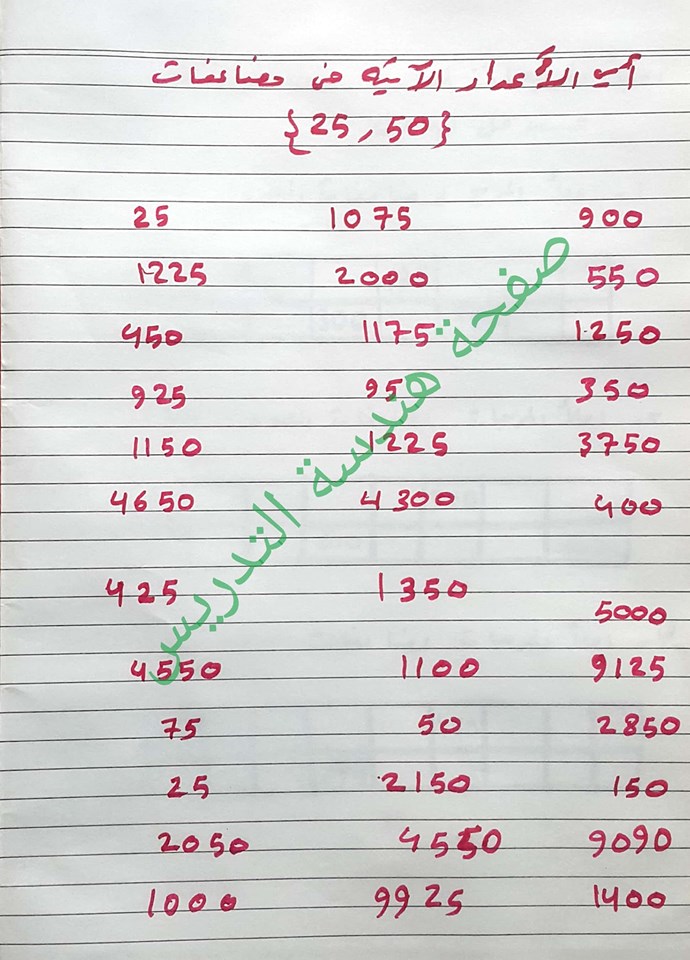 أي الأعداد الآتية من مضاعفات
{25 , 50}
25 1075 900
1225 2000 550
450 1175 1250
925 95 350
1150 1225 3750
4650 4300 400
425 1350 5000
4550 1100 9125
75 50 2850
25 2150 150
2050 4550 9090
1000 9925 1400
صفحة هندسة التدريس